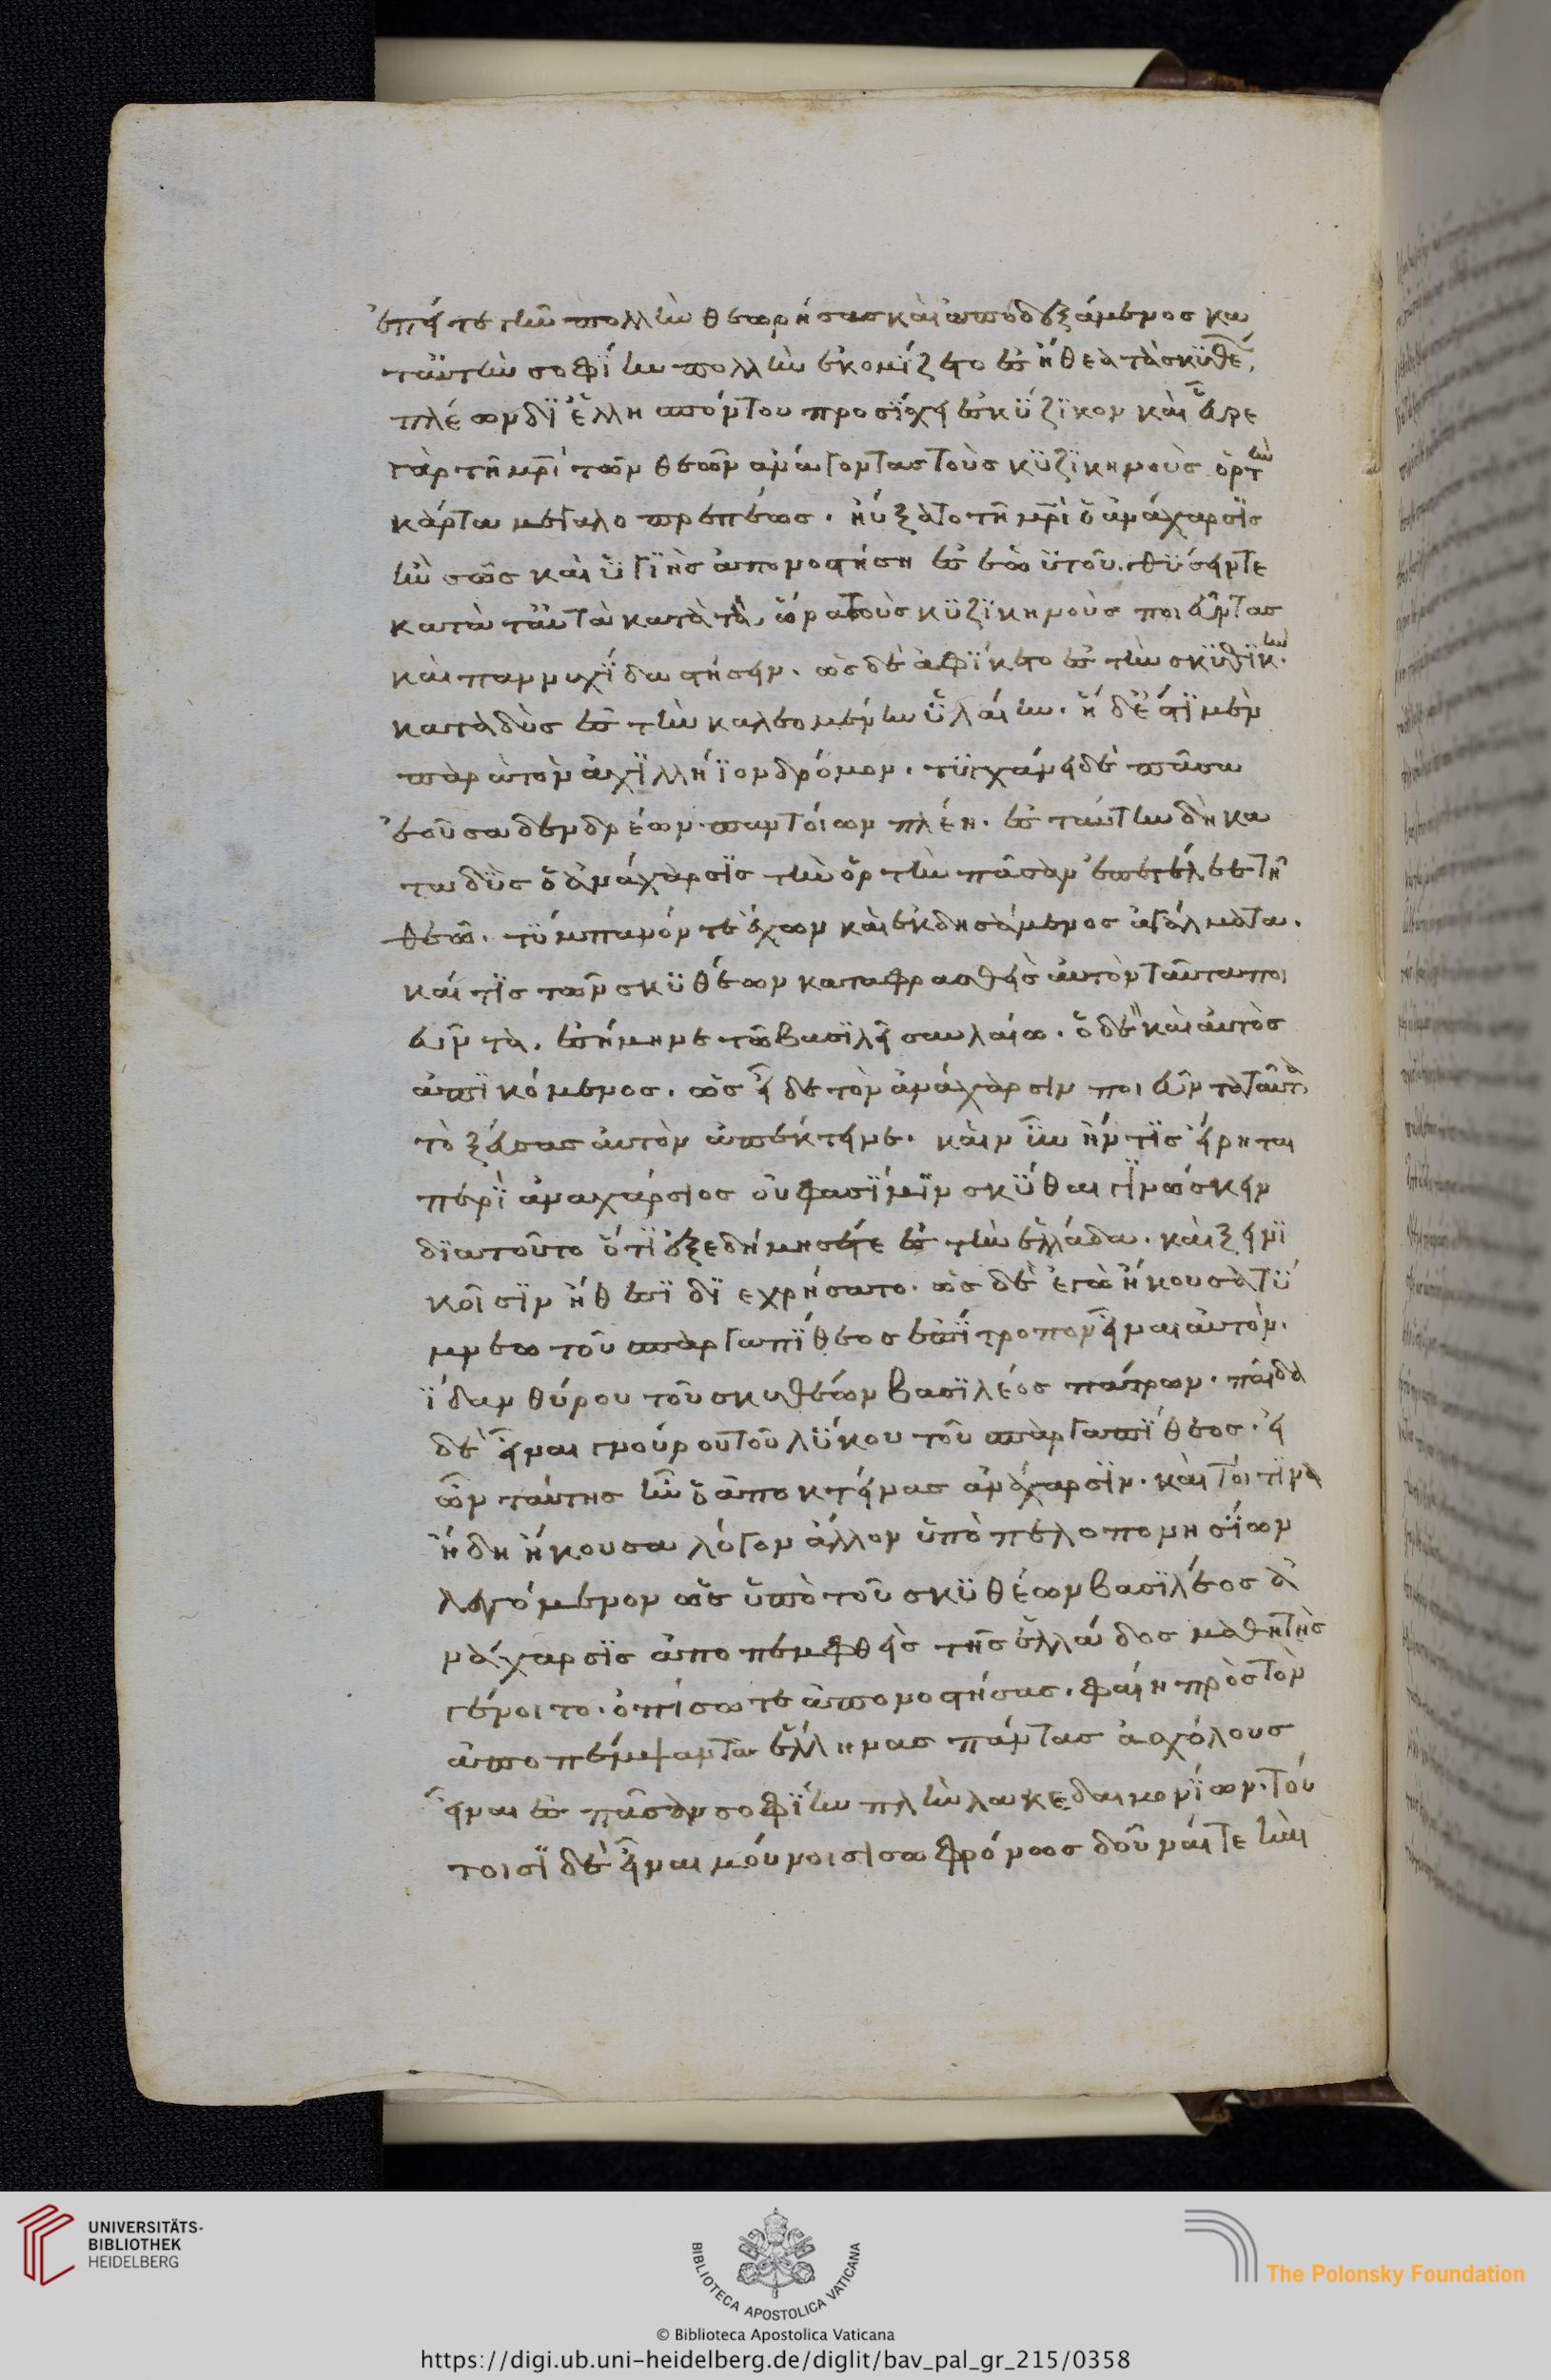 ἐπεί τε γῆν πολλὴν θεωρήσας καὶ ἀποδεξάμενος κα
ταυτὴν σοφίην πολλὴν ἐκομίζετο ἐς ἤθεα τὰ σκϋθέ,
πλέων δϊ ἑλλη σπόντου προσΐσχει ἐς κύζϊκον καὶ εὗρε
γὰρ τῆ μρῒ τῶν θεῶν ἀνάγοντας τοὺς κυζϊκηνοὺς ὁρτὴν
κάρτα μεγαλοπρεπέως. ηὔξατο τῆ μρῒ ὁ ἀνάχαρσϊς
ἢν σῶς καὶ ὑγϊὴς ἀπονοστήση ἐς ἑωϋτοῦ. θύσειν τε
κατὰ ταυτὰ κατὰ τὰ ὥρα τοὺς κυζϊκηνοὺς ποιεῦντας
καὶ παννυχΐδα στήσειν. ὡς δὲ ἀφΐκετο ἐς τὴν σκϋθϊκὴν.
καταδὺς ἐς τὴν καλεομένην ὑλαίην. ἡ δέ ἐστϊ μὲν
παρὰ τὸν ἀχϊλλήϊον δρόμον. τυγχάνει δὲ πᾶσα
ἐοῦσα δενδρέων παντοίων πλέη. ἐς ταύτην δὴ κα
ταδὺς ὁ ἀνάχαρσϊς τὴν ὁρτὴν πᾶσαν ἐπετέλεε τῆ
θεῶ. τύμπανόν τε ἔχων καὶ ἐκδησάμενος ἀγάλματα.
καί τϊς τῶν σκυθέων καταφρασθεὶς αὐτὸν ταῦτα ποι
εῦντα. ἐσήμηνε τῶ βασϊλῆϊ σαυλαίω. ὁ δὲ καὶ αὐτὸς
ἀπϊκόμενος. ὡς εἶδε τὸν ἀνάχαρσιν ποιεῦντα ταῦτα
τοξεύσας αὐτὸν ἀπέκτεινε. καὶ νῦν ἤν τϊς εἴρηται
περὶ ἀναχάρσιος οὔ φασΐ μϊν σκύθαι γϊνώσκειν
δϊατοῦτο ὅτϊ ἐξεδήμησέ τε ἐς τὴν ἑλλάδα. καὶ ξεινϊ
κοῖσϊν ἤθεσϊ δϊεχρήσατο. ὡς δὲ ἐγὼ ἤκουσα τϋ
μνεω τοῦ σπαργαπΐθεος ἐπϊτροπον εἶναι αὐτὸν.
ϊδανθύρου τοῦ σκυθέων βασϊλέος πάτρων. παῖδα
δὲ εἶναι γνούρου τοῦ λύκου τοῦ σπαργαπΐθεος. εἰ
ὦν ταύτης ἦν ὁ ἀποκτείνας ἀνάχαρσϊν. καί τοι τϊνα
ἤδη ἤκουσα λόγον ἄλλον ὑπὸ πελοπονησΐων
λεγόμενον ὡς ὑπὸ τοῦ σκυθέων βασϊλέος ἀ
νάχαρσϊς ἀποπεμφθεὶς τῆς ἑλλάδος μαθητὴς
γένοιτο. ὀπίσω τε ἀπονοστήσας. φαίη πρὸς τὸν
ἀποπέμψαντα ἕλληνας πάντας ἀσχόλους
εἶναι ἐς πᾶσαν σοφϊην πλὴν λακεδαιμονΐων. τού
τοισϊ δὲ εἶναι μούνοισι σωφρόνως δοῦναί τε καὶ
UNIVERSITÄTS-
BIBLIOTHEK
HEIDELBERG
BIBLIOTECA APOSTOLICA VATICANA
The Polonsky Foundation
© Biblioteca Apostolica Vaticana
https://digi.ub.uni-heidelberg.de/diglit/bav_pal_gr_215/0358